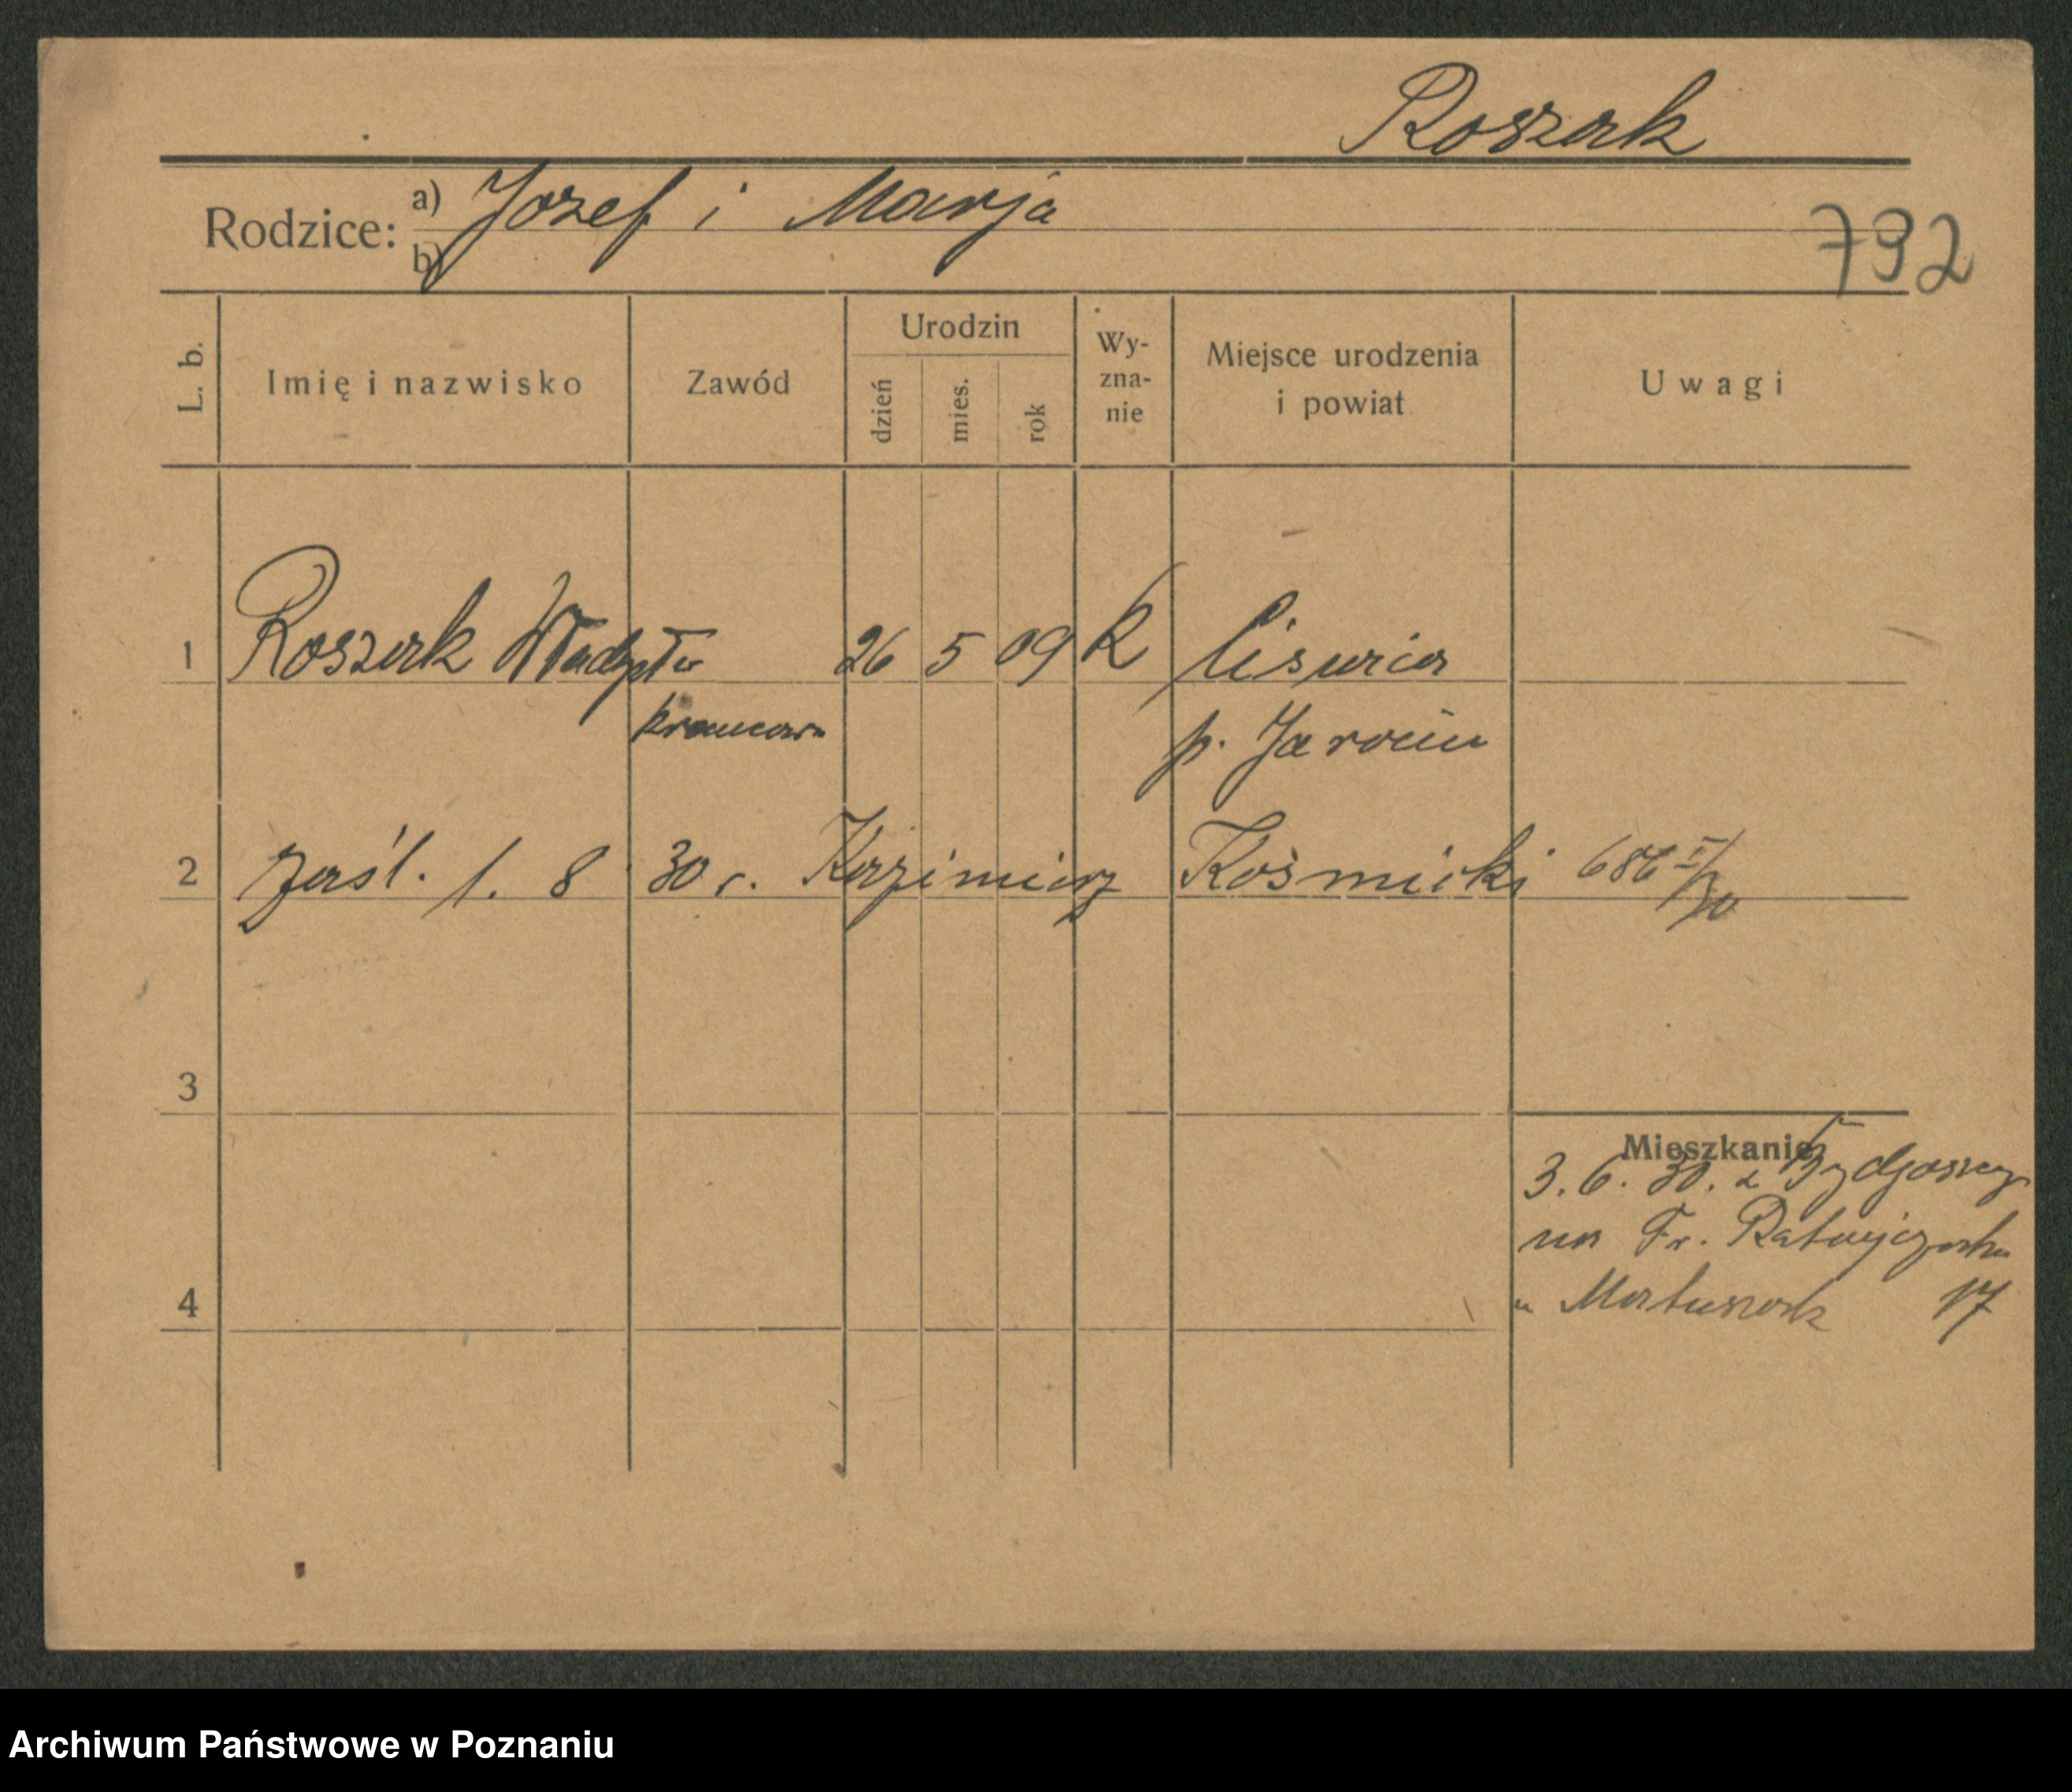 Roszak
Rodzice: a) Jozef i Marja
b)
792
L. b. Imię i nazwisko Zawód Urodzin dzień mies. rok Wy-zna-nie Miejsce urodzenia i powiat Uwagi
1 Roszak 26 5 09 K
p. Jarocin
2 zaśl. 1. 8 30 r. Kazimierz Kośmicki 686
3
Mieszkanie
3. 6. 30. z Bydgoszczy
na Fr. Ratajczaka
4
u Matuszak 17
Archiwum Państwowe w Poznaniu